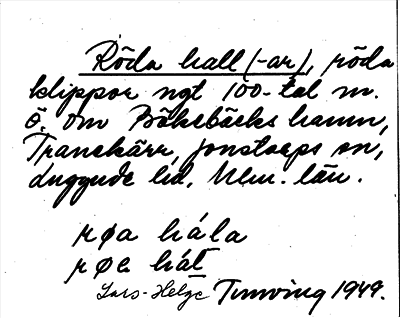 Röda hall (-ar), röda
klippor ngt 100-tal m.
ö. om Bökebäcks hamn,
Tranekärr, Jonstorps sn,
Luggude hd, Mlm. län.
røa hála
røe hál
Lars-Helge Tunving 1949.